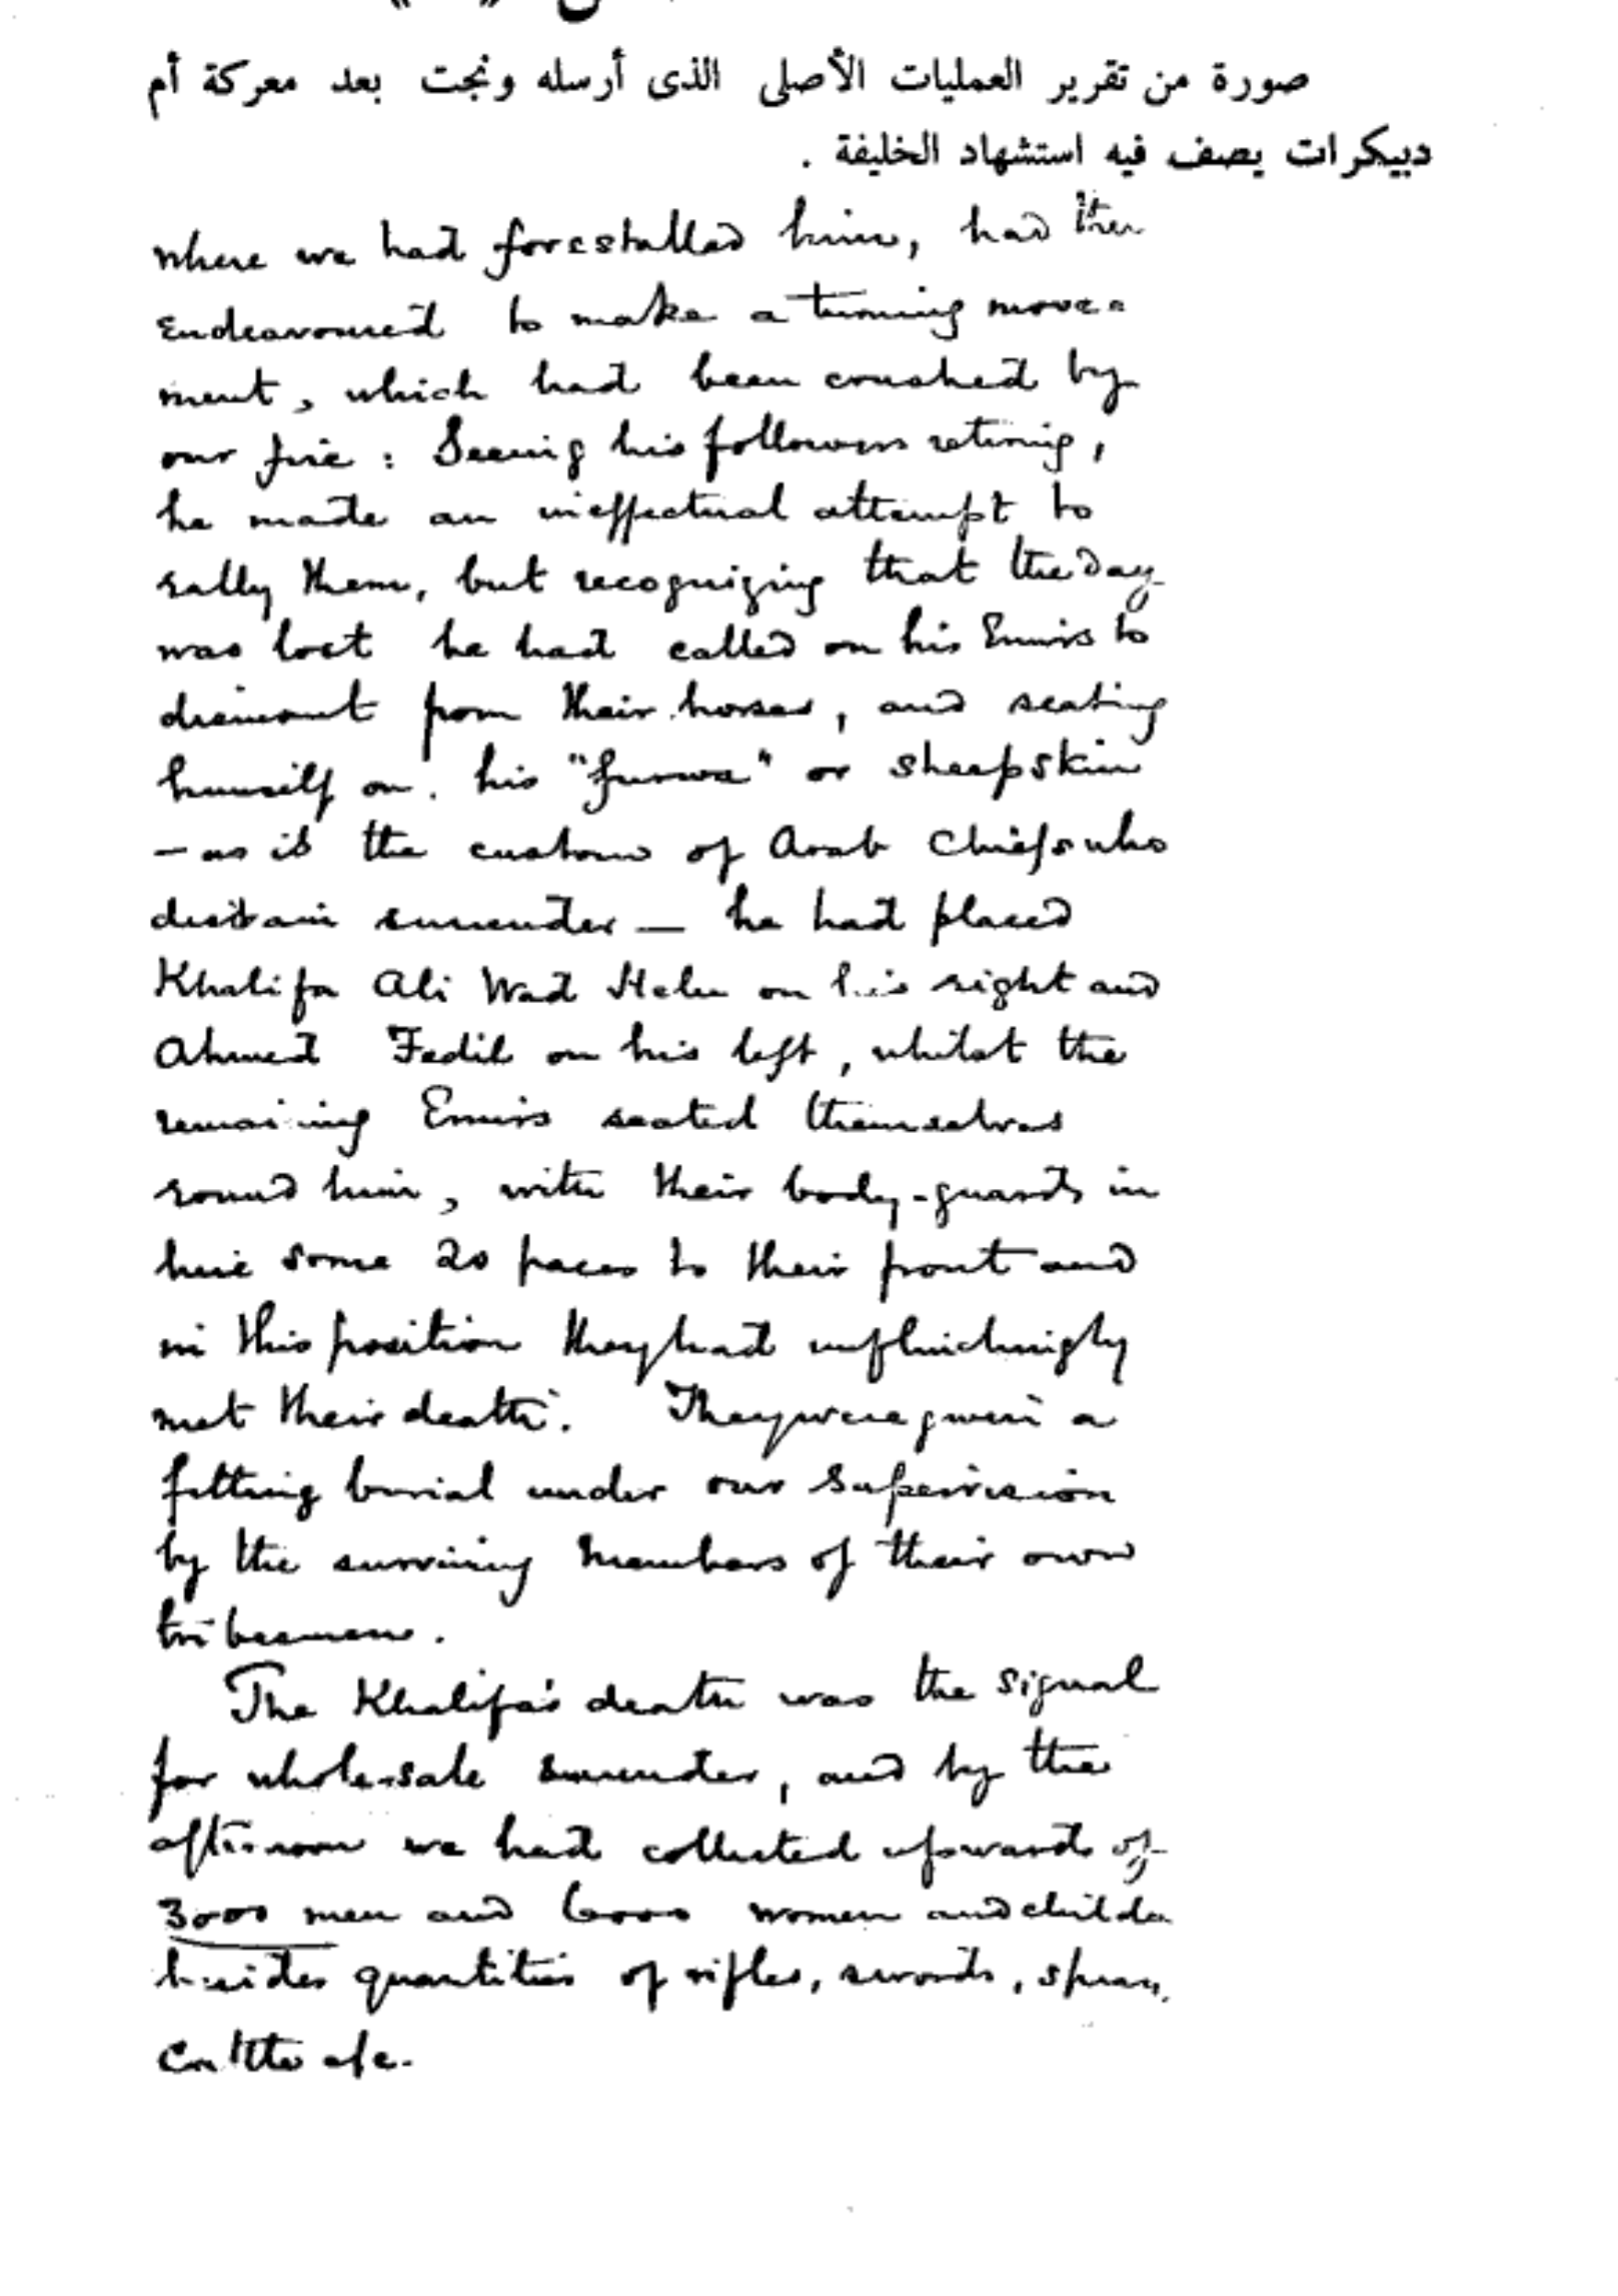 صورة من تقرير العمليات الأصلى الذى أرسله ونجت بعد معركة أم
دبيكرات يصف فيه استشهاد الخليفة .
where we had forestalled him, had then
endeavoured to make a turning move=
ment, which had been crushed by
our fire : Seeing his followers retiring,
he made an ineffectual attempt to
rally them, but recognizing that the day
was lost he had called on his Emirs to
dismount from their horses, and seating
himself on his "furwa" or sheepskin
— as is the custom of Arab Chiefs who
disdain surrender — he had placed
Khalifa Ali Wad Helu on his right and
Ahmed Fedil on his left, whilst the
remaining Emirs seated themselves
round him, with their body-guards in
line some 20 paces to their front and
in this position they had unflinchingly
met their death. They were given a
fitting burial under our supervision
by the surviving members of their own
tribesmen.
The Khalifa's death was the signal
for whole-sale surrender, and by the
afternoon we had collected upwards of
3000 men and 6000 women and
besides quantities of rifles, swords, spears,
Cattle &c.